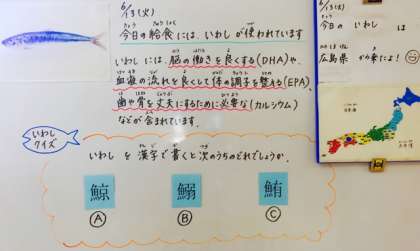 6/13(火)
今日の給食には、いわしが使われています
いわしには、脳の働きを良くする(DHA)や、
血液の流れを良くして体の調子を整える(EPA)、
歯や骨を丈夫にするために必要な(カルシウム)
などが含まれています。
いわし
クイズ
いわしを漢字で書くと次のうちのどれでしょうか。
鯨 鰯 鮪
A B C
6/13(火)
今日のいわしは
広島県が来たよ!